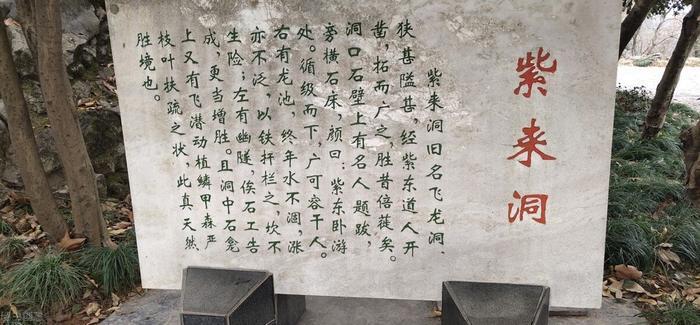 紫来洞
紫来洞旧名飞龙洞、
狭甚隘甚,经紫东道人开
凿,拓而广之,胜昔倍蓰矣。
洞口石壁上有名人题跋,
旁横石床,颜曰:紫东卧游
处。循级而下,广可容千人。
右有龙池,终年水不涸,涨
亦不泛,以铁扦栏之,坎不
生险;左有幽隧,俟石工告
成,更当增胜。且洞中石龛
上又有飞潜动植鳞甲森严
枝叶扶疏之状,此真天然
胜境也。